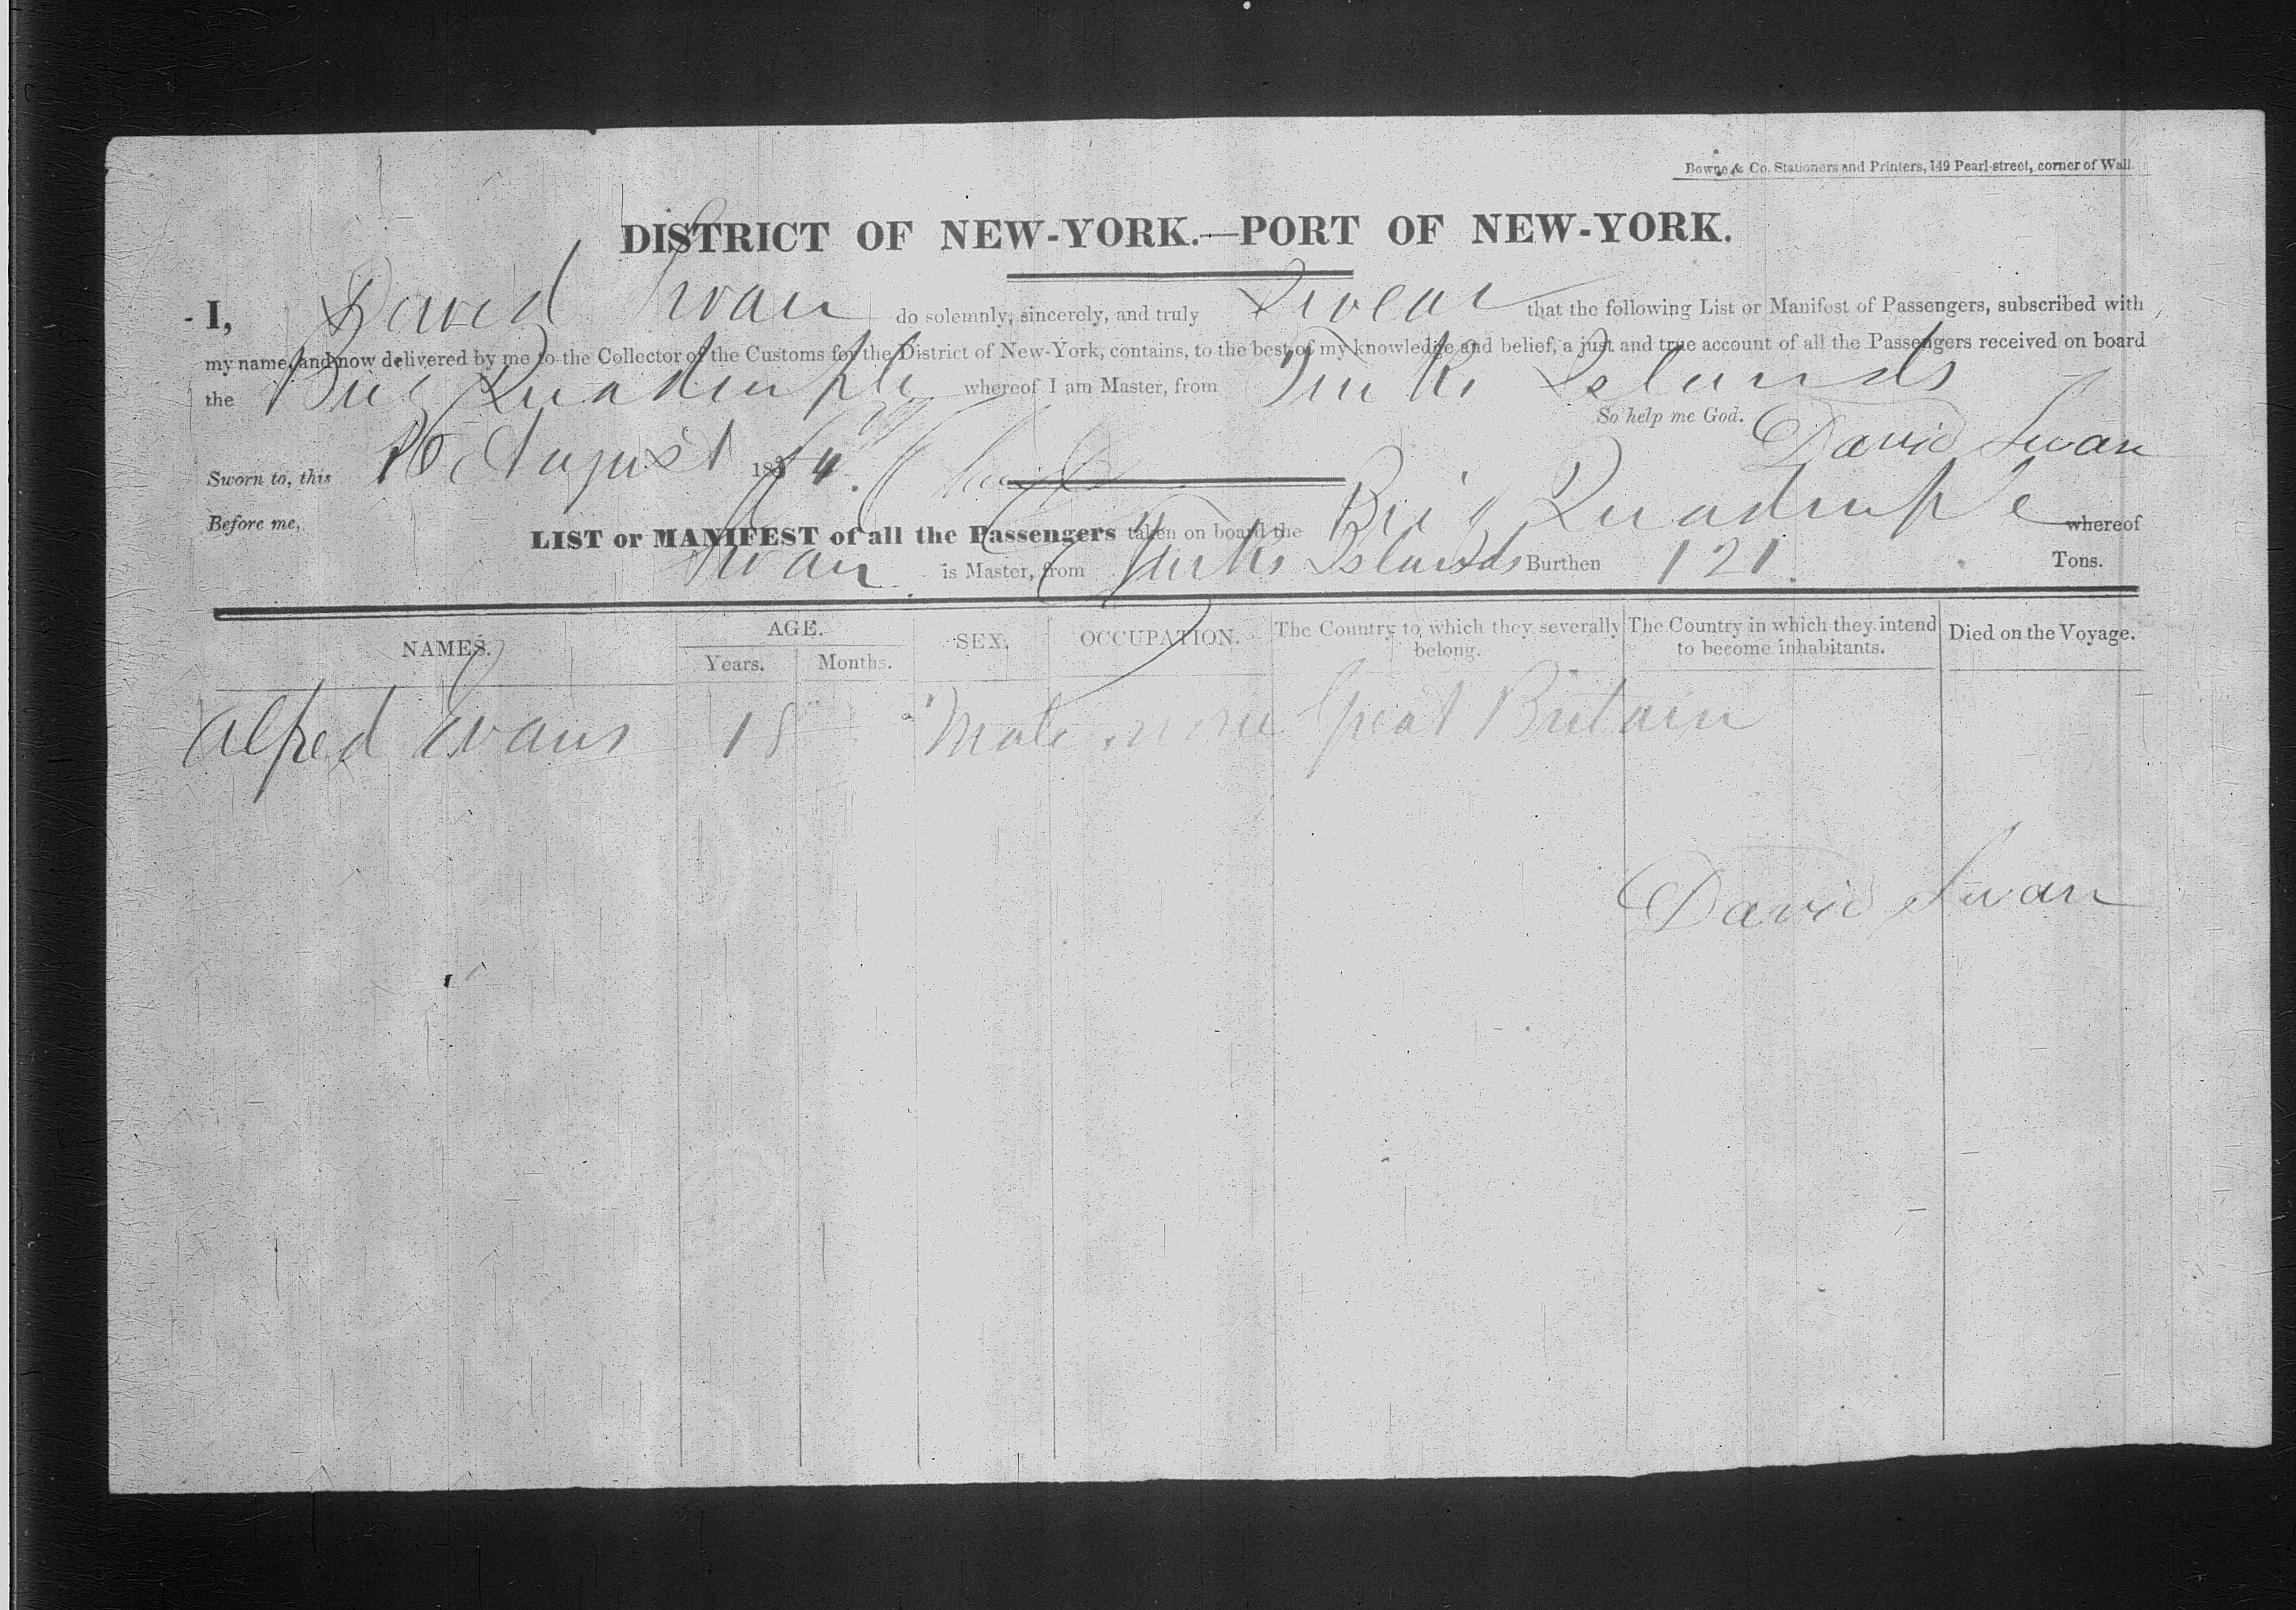 Bowne & Co. Stationers and Printers, 149 Pearl-street, corner of Wall.
DISTRICT OF NEW-YORK.—PORT OF NEW-YORK.
I, David Swan do solemnly, sincerely, and truly Swear that the following List or Manifest of Passengers, subscribed with
my name, and now delivered by me to the Collector of the Customs for the District of New-York, contains, to the best of my knowledge and belief, a just and true account of all the Passengers received on board
the Brig Quadruple whereof I am Master, from Turks Islands
So help me God. David Swan
Sworn to, this 16 August 184
Before me,
LIST or MANIFEST of all the Passengers taken on board the Brig Quadruple whereof
Swan is Master, from Turks Islands Burthen 121 Tons.
NAMES. AGE. Years. Months. SEX. OCCUPATION. The Country to which they severally belong. The Country in which they intend to become inhabitants. Died on the Voyage.
Alfred Evans 18 Male none Great Britain
David Swan